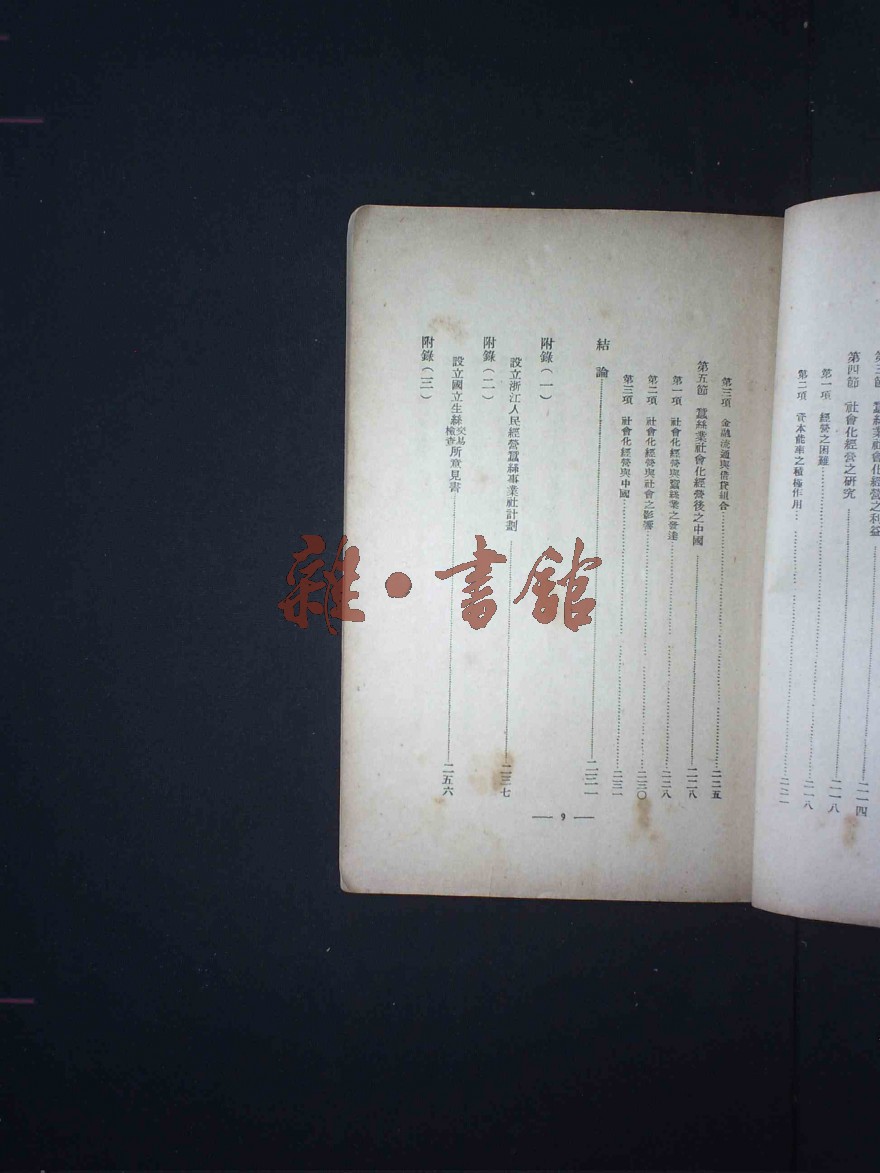 第三節　蠶絲業社會化經營之利益……二一四
第四節　社會化經營之研究……二一八
第一項　經營之困難……二一八
第二項　資本能率之積極作用……二二一
第三項　金融流通與借貸組合……二二五
第五節　蠶絲業社會化經營後之中國……二二八
第一項　社會化經營與蠶絲業之發達……二二八
第二項　社會化經營與社會之影響……二三〇
第三項　社會化經營與中國……二三一
結　論……二三一
附錄（一）
設立浙江人民經營蠶絲事業社計劃……二三七
附錄（二）
設立國立生絲交易檢查所意見書……二五六
附錄（三）
— 9 —
雜·書館